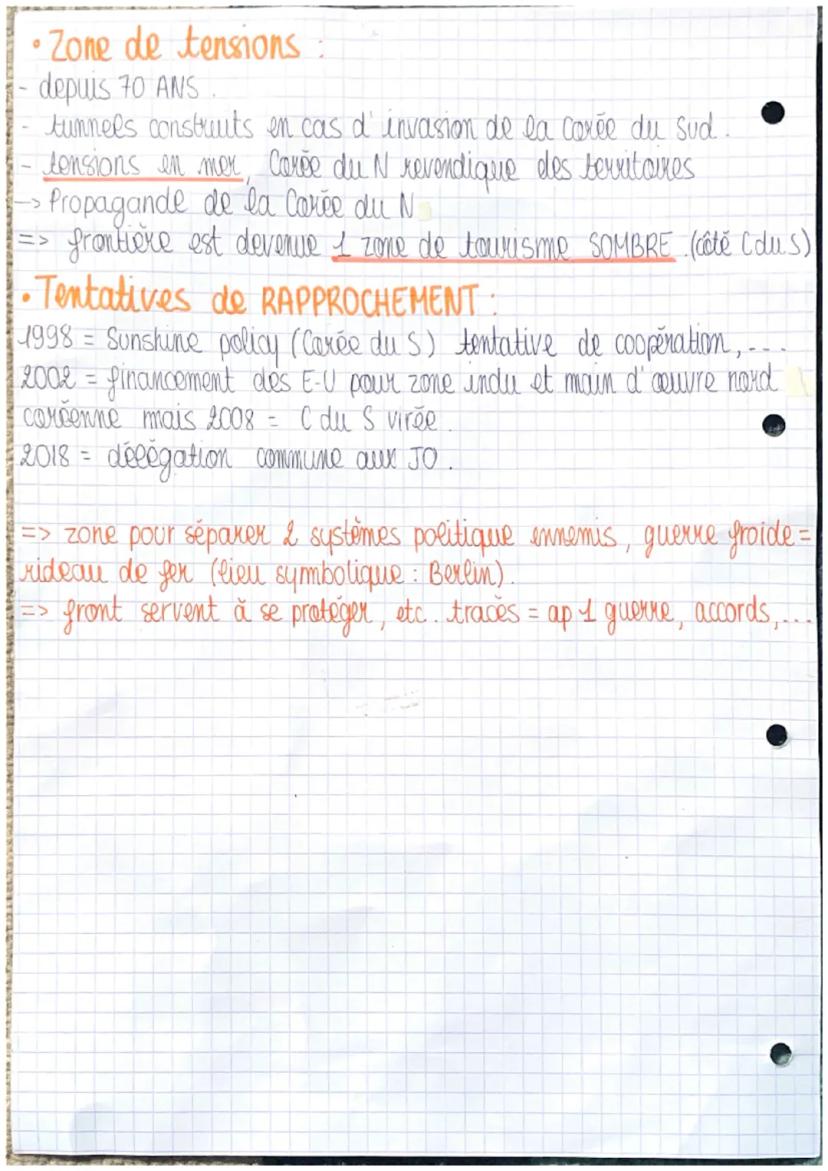 • Zone de tensions :
- depuis 70 ANS.
- tunnels construits en cas d'invasion de la Corée du Sud.
- tensions en mer, Corée du N revendique des territoires
-> Propagande de la Corée du N
=> frontière est devenue 1 zone de tourisme SOMBRE (côté C du S)
• Tentatives de RAPPROCHEMENT :
1998 = Sunshine policy (Corée du S) tentative de coopération,...
2002 = financement des E-U pour zone indu et main d'œuvre nord
coréenne mais 2008 = C du S virée.
2018 = délégation commune aux JO.
=> zone pour séparer 2 systèmes politique ennemis, guerre froide =
rideau de fer (lieu symbolique : Berlin).
=> front servent à se protéger, etc. tracés = ap 1 guerre, accords,...